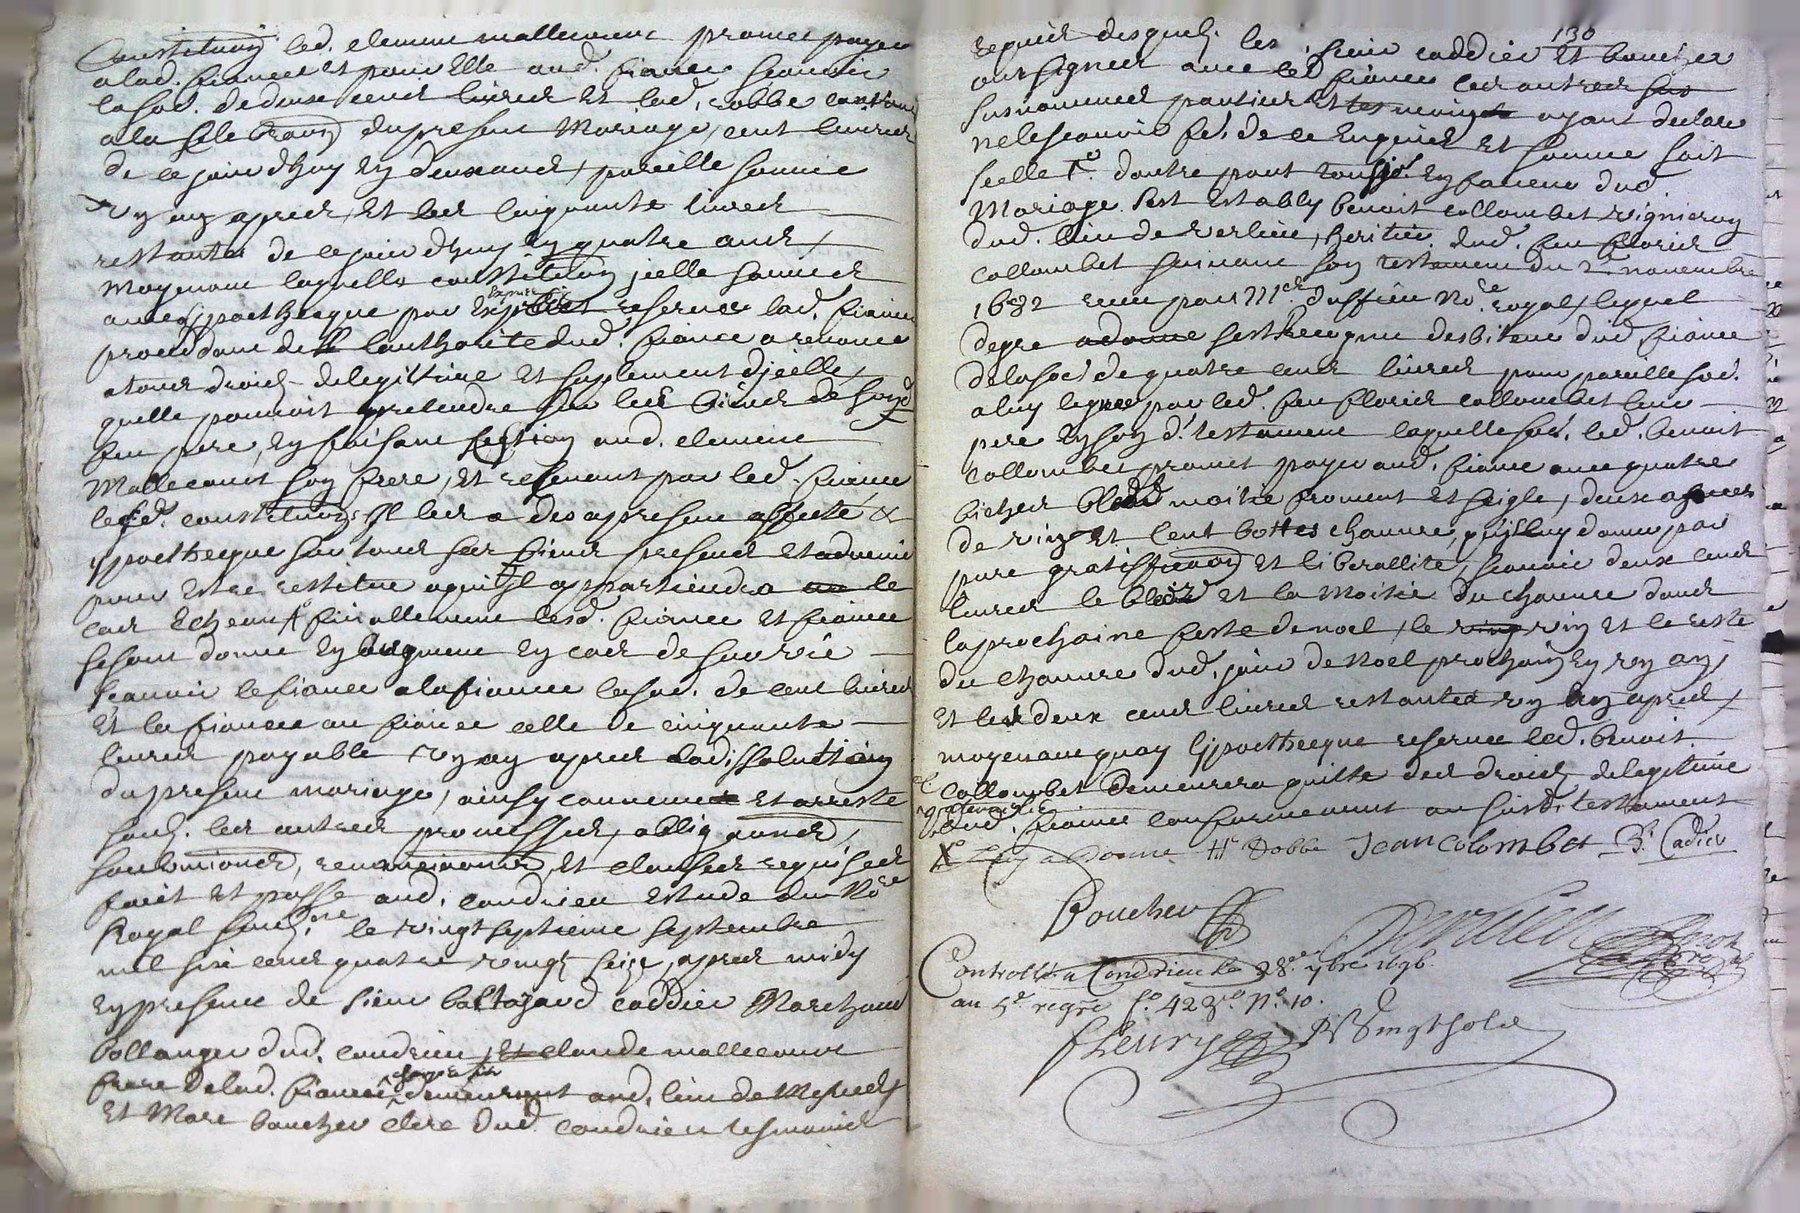 Constitution led. clement mallecourt promet payer
a lad. fiancee et pour elle aud. fiance scavoir
la som. de deux cens livres et lad. robbe
a la celebraon du present Mariage, cent livres
de ce jour d'huy en deux ans, pareille somme
un an apres, et les cinquante livres
restantes de ce jour d'huy en quatre ans,
moyenant laquelle constitution jcelle somme
avec hypothecque par expres reservee lad. fiancee
procedant de lauthorite dud. fiance a renonce
a tous droicts de legittime et suplement djcelle,
quelle pourroit pretendre sur les biens de sond
feu pere, en faisant cession aud. clement
Mallecourt son frere, et recevant par led. fiance
lesd. constituons, Il les a des a present affecté &
ypothecque sur tous ses biens presens et advenir
pour estre restitue a qui Il appartiendra le
cas echeant finallement lesd. fiance et fiancee
se sont donne en augment en cas de survie
scavoir le fiance a la fiancee la som. de cent livres
et la fiancee au fiance celle de cinquante
livres payable un an apres la dissolution
du present mariage, ainsy convenu et arreste
soubs les autres promesses, obligaons,
soubmions, renonciaons, et clauses requises
faict et passe aud. condrieu estude du No.re
Royal soubs.ne le vingt septieme septembre
mil six cens quatre vingts seize, apres midy
en presence de sieur baltazard caddier Marchand
bollanger dud. condrieu, claude mallecourt
frere de lad. fiancee demeurant aud. lieu de
et Marc boucher clerc dud. condrieu tesmoins
130
requis desquels les sieur caddier et boucher
ont signer avec led fiance les autres
susnommes parties et ayant declare
ne le scavoir fe. de ce enquis et somme soit
scelle f.e d'autre part en faveur dud.
Mariage s'est estably benoit collombet vigneron
dud. lieu de verlieu, heritier dud. feu florier
collombet suivant son testament du 2e novembre
1682 receu par M.e duffieu No.re royal, lequel
de gre s'est recognu debiteur dud fiance
de la som. de quatre cens livres pour pareille som.
a luy leguee par led. feu florier collombet leur
pere en son d. testament laquelle som. led. benoit
collombet promet payer aud. fiance avec quatre
bichets bled moitie froment et seigle, deux asnees
de vin et cent bottes chanvre, qu'il luy donne par
pure gratiffication et liberallite, scavoir deux cens
livres le bled et la moitie du chanvre dans
la prochaine feste de noel, le vin et le reste
du chanvre dud. jour de Noel prochain en un an,
et les deux cens livres restantes un an apres,
moyenant quoy hypothecque reservee led. benoit
collombet demeurera quitte des droicts de legitime
dud. fiance conformement au susd. testament
Jean Colombet B. Cadier
Boucher
Controllé a Condrieu le 28e 7bre 1696
au 5e reg.re f.o 42 N.o 10.
fleury